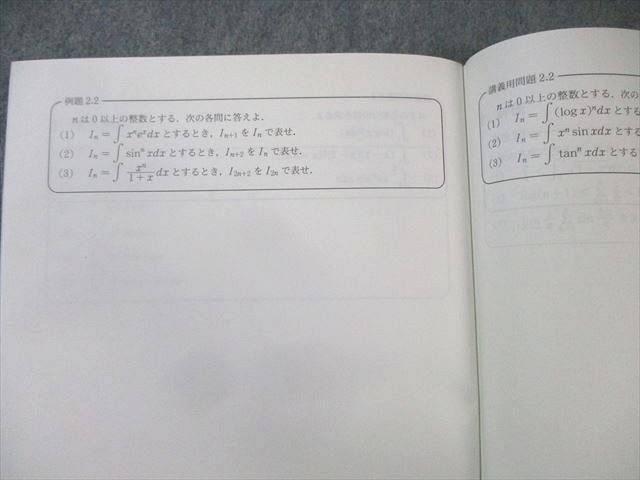 例題 2.2
n は 0 以上の整数とする．次の各問に答えよ．
(1) Iₙ = ∫ xⁿeˣdx とするとき，Iₙ₊₁ を Iₙ で表せ．
(2) Iₙ = ∫ sinⁿ xdx とするとき，Iₙ₊₂ を Iₙ で表せ．
(3) Iₙ = ∫ xⁿ/(1 + x) dx とするとき，I₂ₙ₊₂ を I₂ₙ で表せ．
講義用問題 2.2
n は 0 以上の整数とする．次の
(1) Iₙ = ∫ (log x)ⁿdx とする
(2) Iₙ = ∫ xⁿ sin xdx とする
(3) Iₙ = ∫ tanⁿ xdx とする